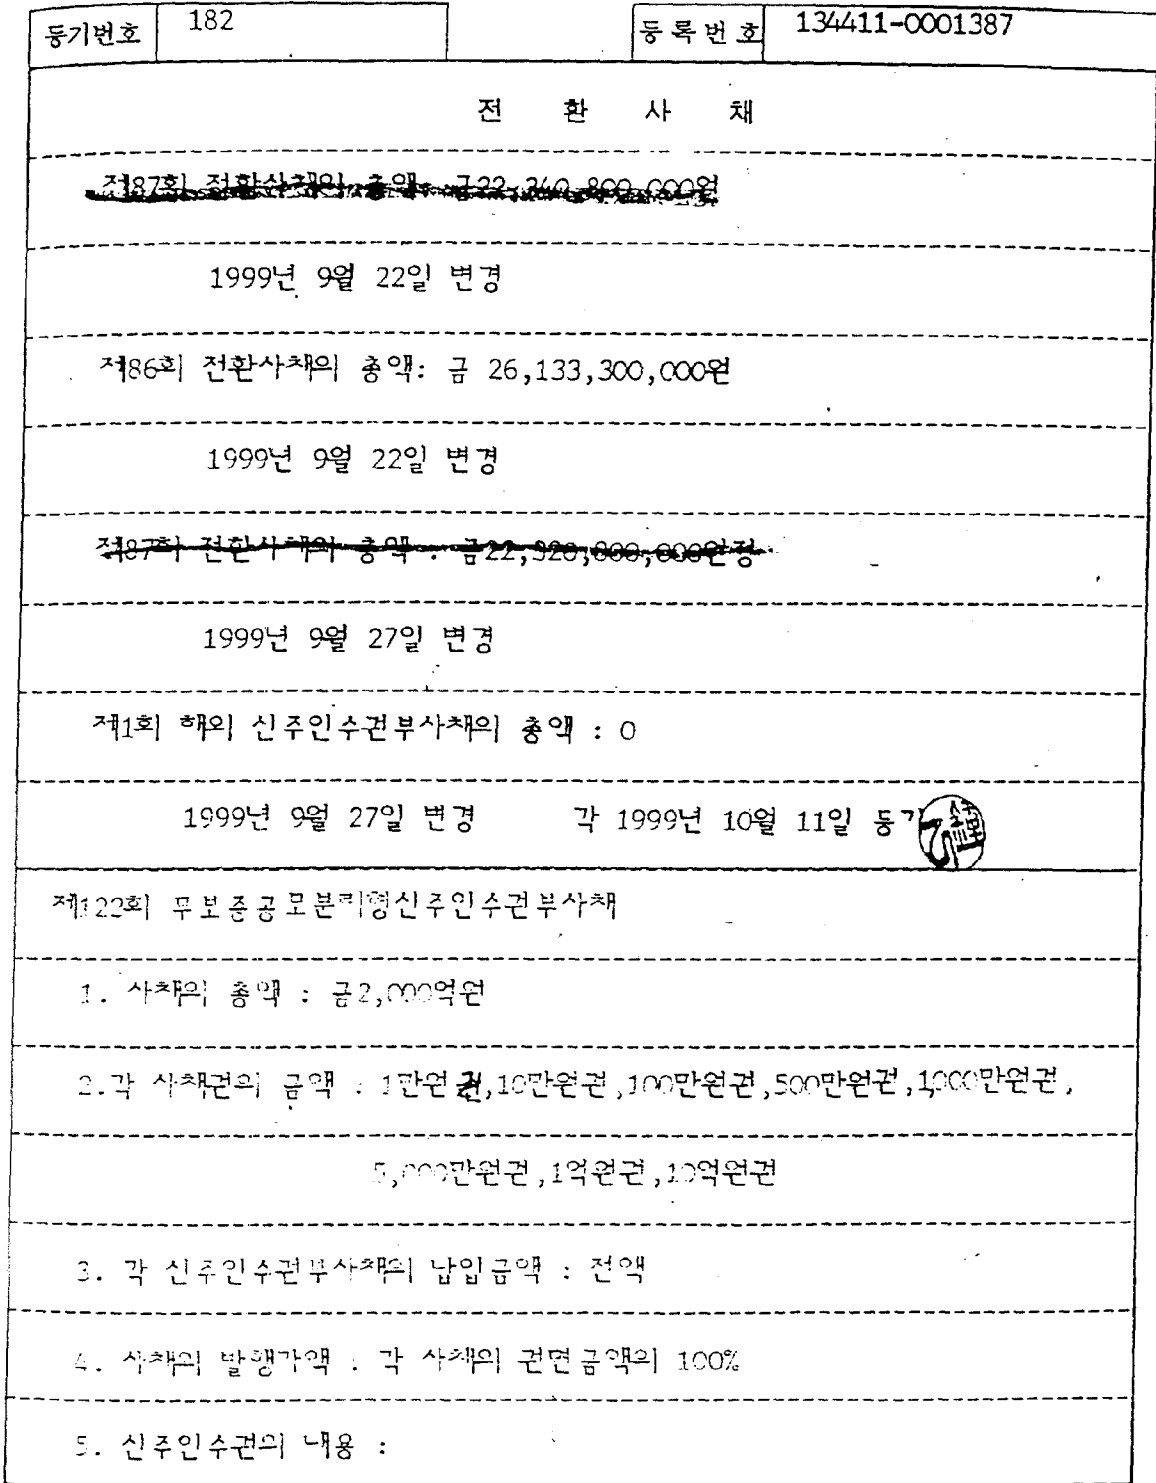 등기번호 182 등록번호 134411-0001387
전 환 사 채
제87회 전환사채의 총액: 금22,340,800,000원
1999년 9월 22일 변경
제86회 전환사채의 총액: 금 26,133,300,000원
1999년 9월 22일 변경
제87회 전환사채의 총액 : 금22,320,000,000원정
1999년 9월 27일 변경
제1회 해외 신주인수권부사채의 총액 : 0
1999년 9월 27일 변경 각 1999년 10월 11일 등기
제122회 무보증공모분리형신주인수권부사채
1. 사채의 총액 : 금2,000억원
2.각 사채권의 금액 : 1만원권,10만원권,100만원권,500만원권,1,000만원권,
5,000만원권,1억원권,10억원권
3. 각 신주인수권부사채의 납입금액 : 전액
4. 사채의 발행가액 : 각 사채의 권면금액의 100%
5. 신주인수권의 내용 :